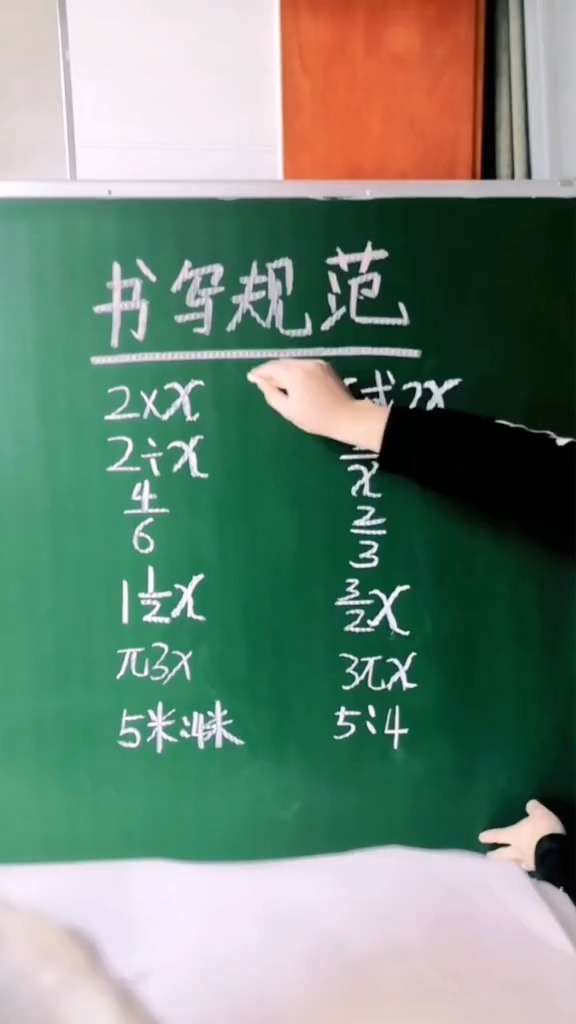 书写规范
2×x 或2x
2÷x x
4/6 2/3
1 1/2 x 3/2 x
π3x 3πx
5米:4米 5:4